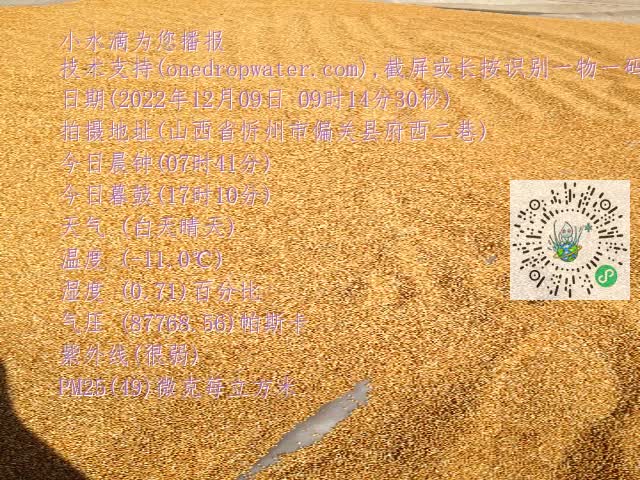 小水滴为您播报
技术支持(onedropwater.com),截屏或长按识别一物一码
日期(2022年12月09日 09时14分30秒)
拍摄地址(山西省忻州市偏关县府西二巷)
今日晨钟(07时41分)
今日暮鼓(17时10分)
天气 (白天晴天)
温度 (-11.0℃)
湿度 (0.71)百分比
气压 (87768.56)帕斯卡
紫外线(很弱)
PM25(49)微克每立方米